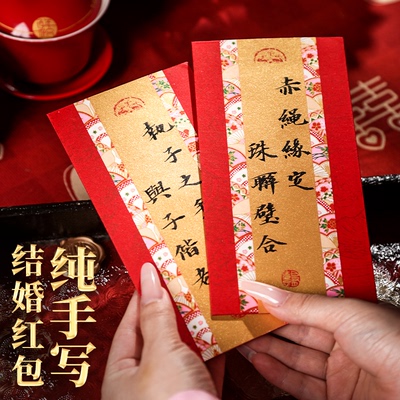 赤繩緣定
珠聯璧合
執子之手
與子偕老
纯手写
结婚红包